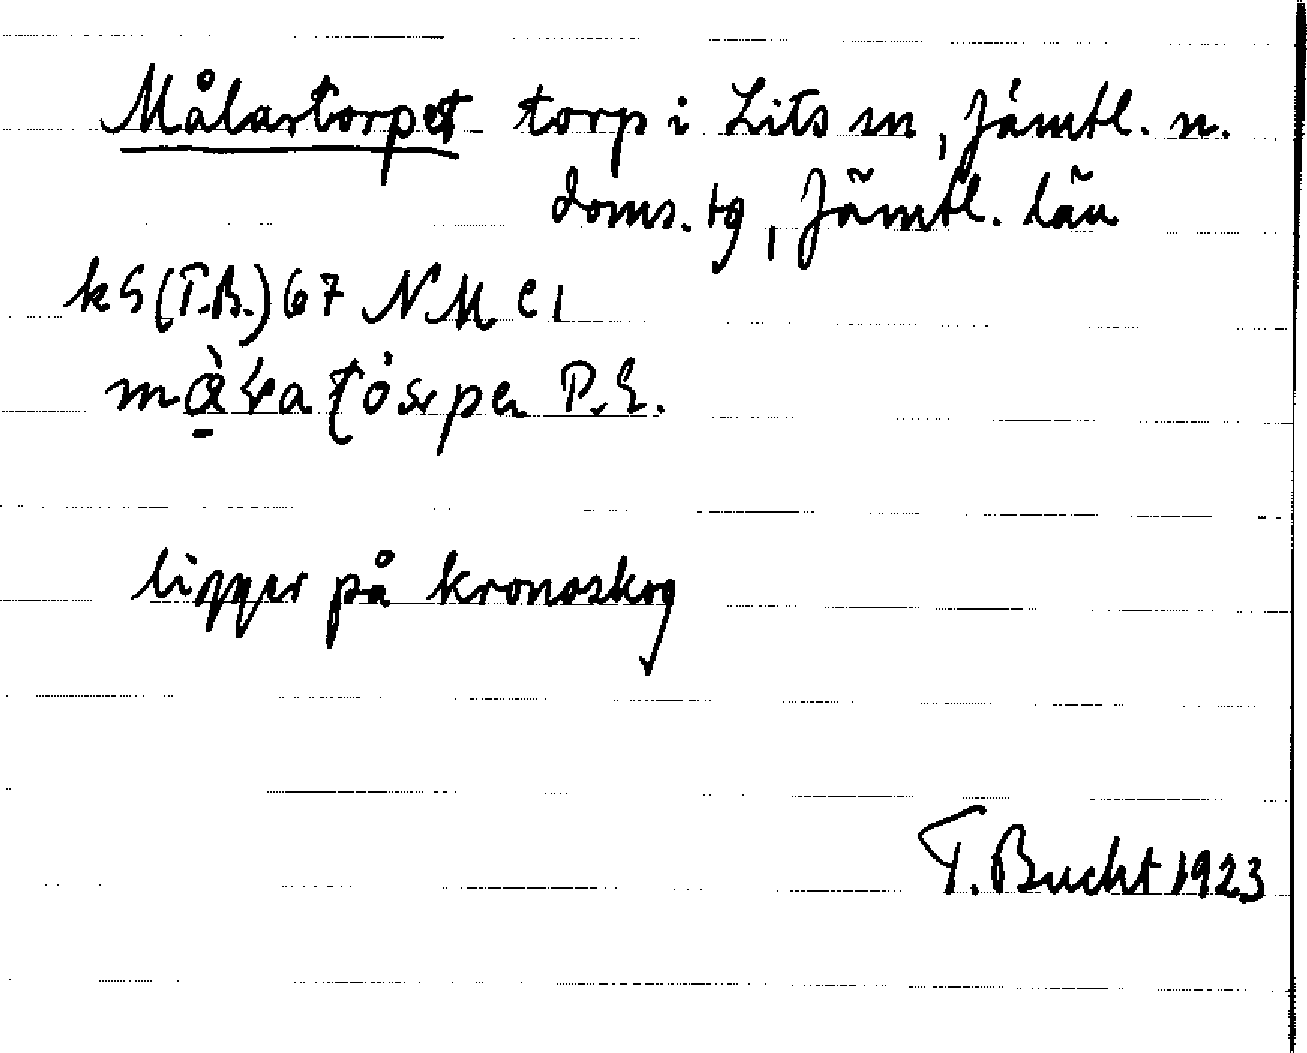 Målartorpet torp i Lits sn, Jämtl. n.
doms. tg, Jämtl. län
k5 (T.B.) 67 NM c 1
P.E.
ligger på kronoskog
T. Bucht 1923